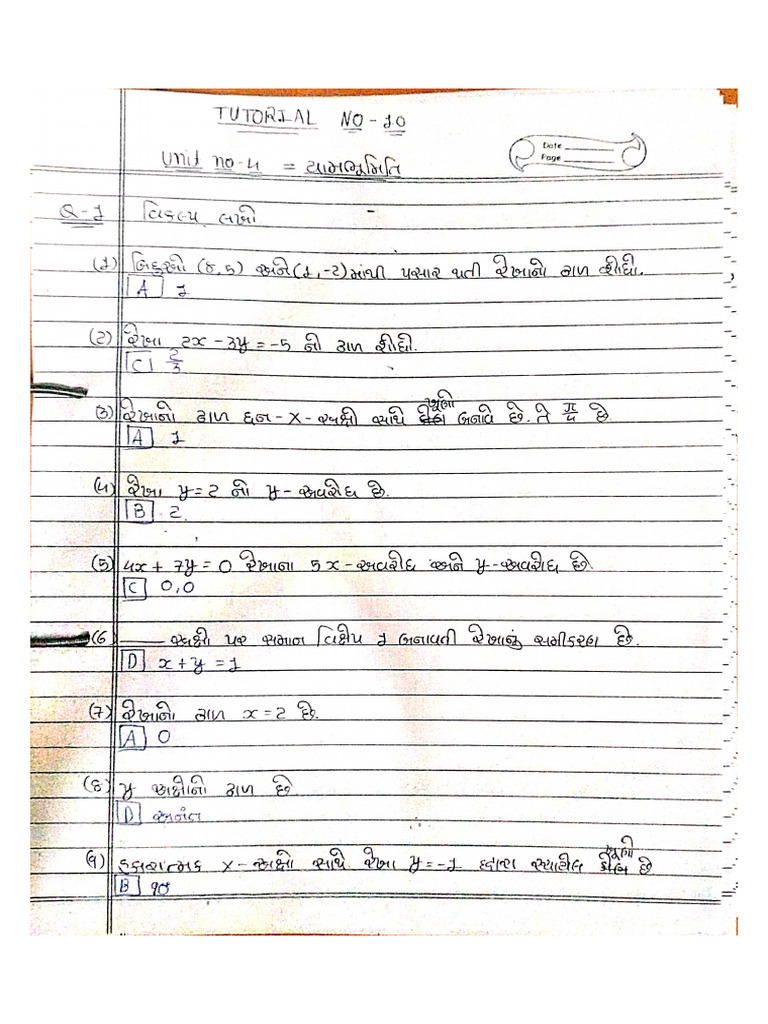 TUTORIAL NO - 10
Date
Page
Unit no-4 = યામભૂમિતિ
Q-1 વિકલ્પ લખો -
(1) બિંદુઓ (8,5) અને (1,-2) માંથી પસાર થતી રેખાનો ઢાળ શોધો.
A 1
(2) રેખા 2x - 3y = -5 નો ઢાળ શોધો.
C 2/3
(3) રેખાનો ઢાળ ધન - X - અક્ષો સાથે ખૂણો બનાવે છે. તે π/4 છે
A 1
(4) રેખા y = 2 નો y - અવરોધ છે.
B 2
(5) 4x + 7y = 0 રેખાના 5 x - અવરોધ અને y - અવરોધ છે.
C 0,0
(6) ___ અક્ષો પર સમાન વિક્ષેપ 1 બનાવતી રેખાનું સમીકરણ છે.
D x + y = 1
(7) રેખાનો ઢાળ x = 2 છે.
A 0
(8) y અક્ષોનો ઢાળ છે.
D અનંત
(9) હકારાત્મક x - અક્ષો સાથે રેખા y = -1 દ્વારા ખૂણો છે
B